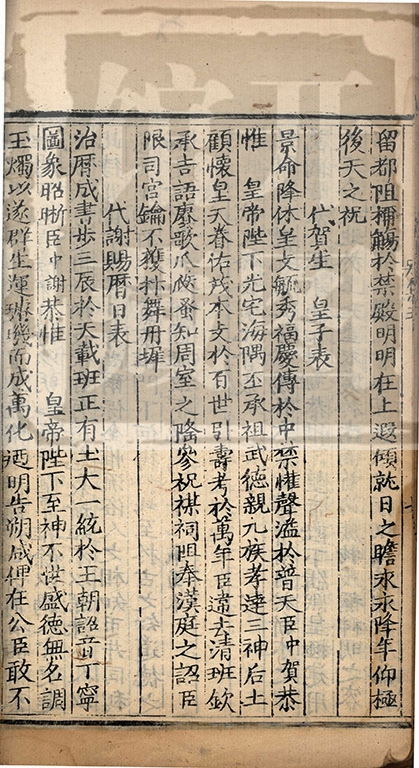 留都阻稱觴於禁殿明明在上遐傾就日之瞻永永降年仰極
後天之祝
代賀生　皇子表
景命降休呈文毓秀福慶傳於中禁懽聲溢於普天臣中賀恭
惟　皇帝陛下光宅海隅丕承祖武德親九族孝達三神后土
顧懷皇天眷佑茂本文於百世引壽考於萬年臣遠去清班欽
承吉語賡歌瓜瓞蚤知周室之隆參祝禖祠阻奉漢庭之詔臣
限司宮鑰不獲抃舞丹墀
代謝賜曆日表
治曆成書步三辰於天載班正有土大一統於王朝詔音丁寧
圖象昭晰臣中謝恭惟　皇帝陛下至神不世盛德無名調
玉燭以遂群生渾璣而成萬化廼明告朔咸俾在公臣敢不